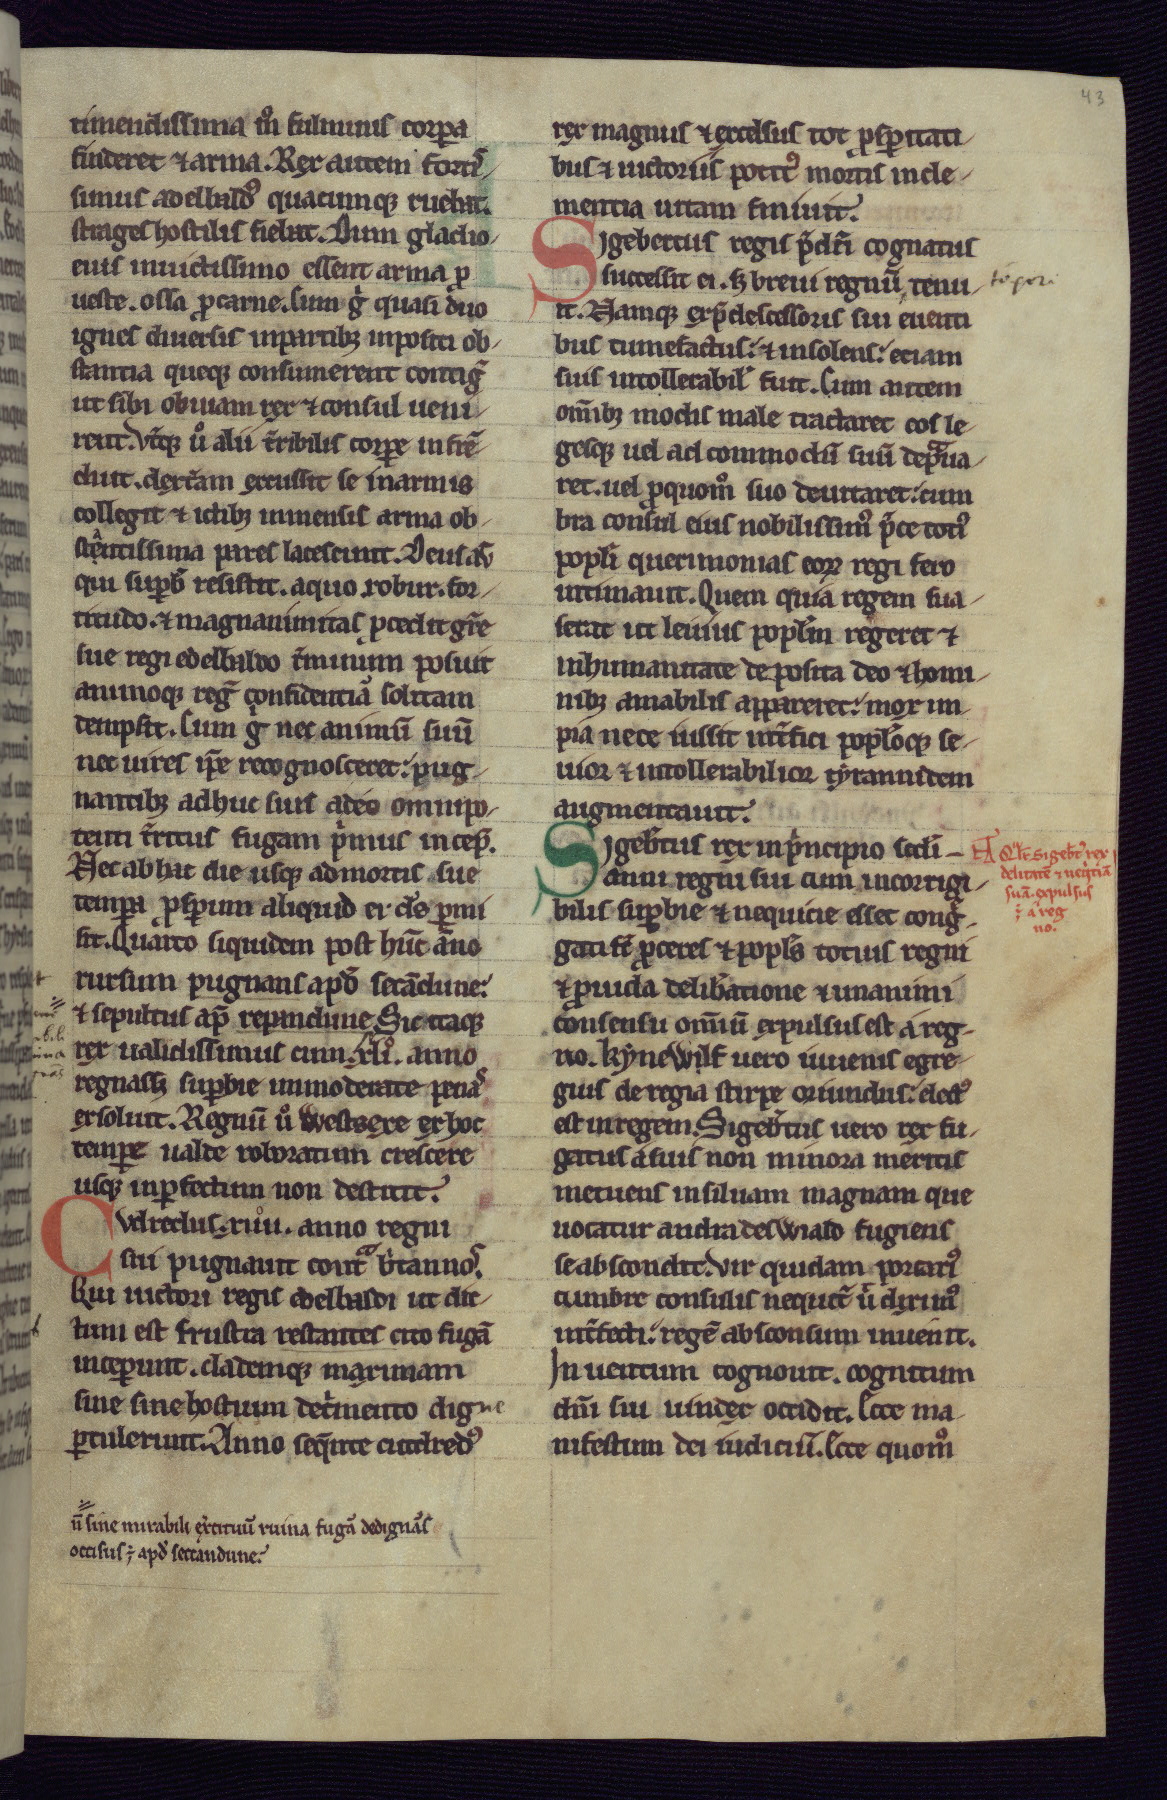 43
timendissima m̄ fulminis corpora
finderet ⁊ arma. Rex autem fortis-
simus adelbald᷒ quacumq; ruebat.
strages hostilis fiebat. Dum gladio
eius inuictissimo essent arma ꝓ
ueste. ossa ꝓ carne. Cum gͥ quasi duo
ignes diuersis inpartib; inpositi ob-
stantia queq; consumerent contig̃
ut sibi obuiam rex ⁊ consul ueni-
rent. Vtq; ů alii t̃ribilis corpore infrē
duit. dext̃am excussit se inarmis
collegit ⁊ ictib; inmensis arma ob-
stentissima pares lacesciunt. Deus aũ
qui suꝑb̃ resistit. aquo robur. for-
titudo. ⁊ magnanimitas ꝓcedit gr̃e
sue regi edelbaldo t̃minum posuit
animoq; reg̃ confidentiā solitam
dempsit. Cum gͥ nec animū suū
nec uires ip̃e recognosceret. pug-
nantib; adhuc suis a deo omnipo-
tenti t̃ritus fugam pͥmus incep̃.
Nec ab hac die usq; ad mortis sue
tempora ꝓsꝑum aliquid ei d̃s ꝑmi
sit. Quarto siquidem post hūc āno
rursum pugnans apd̃ secādune.
⁊ sepultus ap̃ repindune. Sic itaq;
rex ualidissimus cum. xliͦ. anno
regnass; suꝑbie immoderate penas
exsoluit. Regnū ů westsexe ex hoc
tempore ualde roboratum crescere
usq; inꝑfectum non destitit.
Cudredus. xiiii. anno regni
sui pugnauit contra b̃tannos.
Qui uictori regis adelbaldi ut dic-
tum est frustra restantes cito fugā
inceperunt. clademq; maximam
sine sine hostium det̃mento digne
ꝑtulerunt. Anno seq̃nte cuthred᷒
ū sine mirabili ex̃cituū ruina fugā dedignās
occisus ÷ apd̃ seccandune.
rex magnus ⁊ excelsus tot ꝓsꝑitati-
bus ⁊ uictoriis potit᷒ mortis incle-
mentia uitam finiuit.
Sigebertus regis p̃dc̃i cognatus
successit ei. s; breui regnū tenu-
tẽpori
it. Namq; ex p̃decessoris sui euenti
bus tumefactus. ⁊ insolens. etiam
suis intollerabil̃ fuit. Cum autem
om̃ib; modis male tractaret eos le-
gesq; uel ad commodū suū depͣua-
ret. uel ꝓ quom̊ suo deuitaret. cum
bra consul eius nobilissim᷒ p̃ce toti᷒
popl̃i querimonias eoꝝ regi fero
intimauit. Quem quia regem sua-
serat ut leuius popl̃m regeret ⁊
inhumanitate deposita deo ⁊ homi-
nib; amabilis appareret. mox im-
pia nece iussit int̃fici popl̃oq; se-
uior ⁊ intollerabilior tyrannidem
augmentauit.
Sigeb̃tus rex inpͥncipio secd̃i
anni regni sui cum incorrigi-
bilis suꝑbie ⁊ nequicie esset cong̃-
gati st̃ ꝓceres ⁊ popl̃s totius regni
⁊ ꝓuida delib̃atione ⁊ unanimi
consensu om̃iū expulsus est a reg-
no. Kynewlf uero iuuenis egre-
gius de regia stirpe oriundus. elect᷒
est in regem. Sigeb̃tus uero rex fu-
gatus a suis non minora meritis
metuens in siluam magnam que
uocatur andradeswald fugiens
se abscondit. Vir quidam porcari᷒
cumbre consulis nequit̃ ů dixim᷒
int̃fecti. regē absconsum inuenit.
Inuentum cognouit. cognitum
dn̄i sui uindex occidit. Ecce ma-
nifestum dei iudiciū. Ecce quom̊
Sigeb̃t᷒ rex
expulsus
÷ a reg
no.